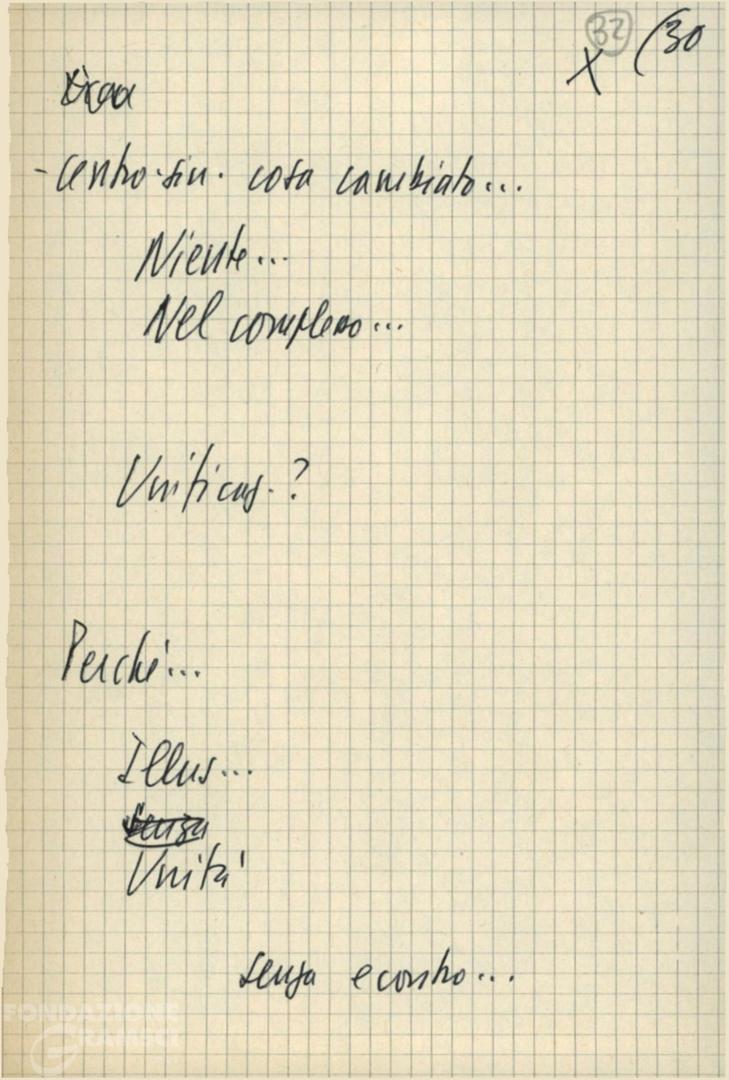 32 (30
X
- Centro-sin. cosa cambiato...
Niente...
Nel complesso...
Unificaz. ?
Perché...
Illus...
Senza
Unità
senza e contro...
FONDAZIONE
GRAMSCI